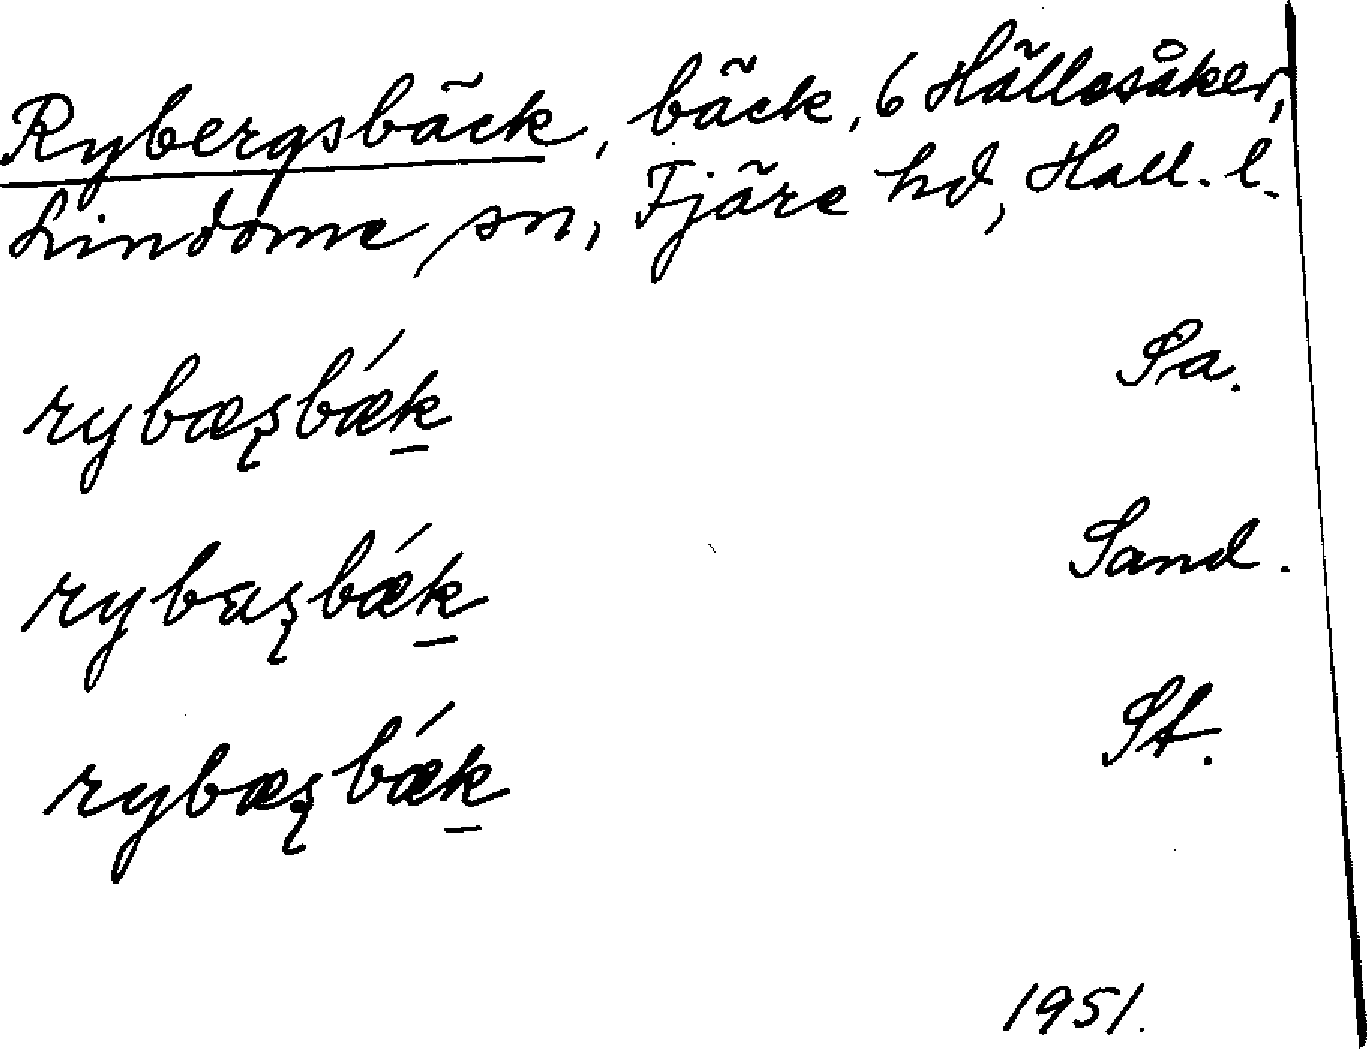 Rybergsbäck, bäck, 6 Hällesåker,
Lindome sn, Fjäre hd, Hall. l.
rybæʂbǽk Sa.
rybaʂbǽk Sand.
rybæʂbǽk St.
1951.